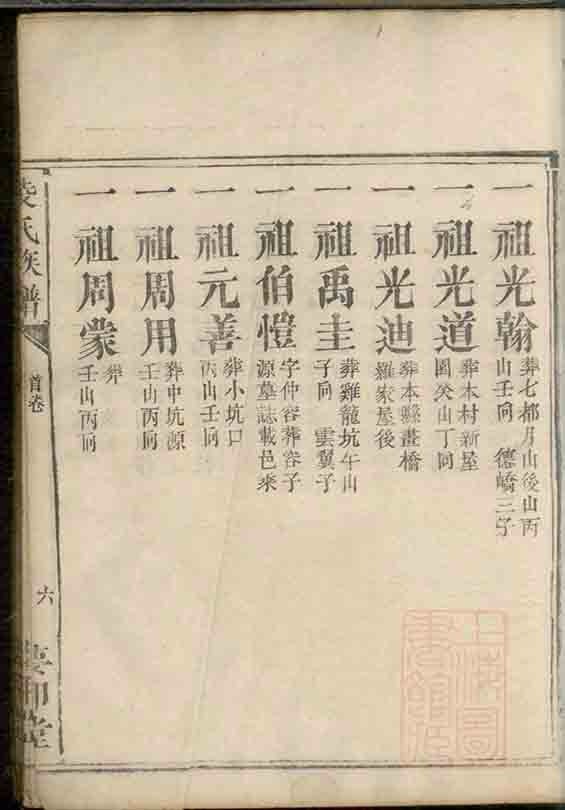 一祖光翰
葬七都月山後山丙
山壬向 德嶠三子
一祖光道
葬本村新屋
園癸山丁向
一祖光迪
葬本縣畫橋
羅家屋後
一祖禹圭
葬雞龍坑午山
子向 雲翼子
一祖伯愷
字仲容葬容子
源墓誌載邑乘
一祖元善
葬小坑口
丙山壬向
一祖周用
葬中坑源
壬山丙向
一祖周蒙
葬
壬山丙向
氏族譜
首卷
六
堂
上海圖
書館藏